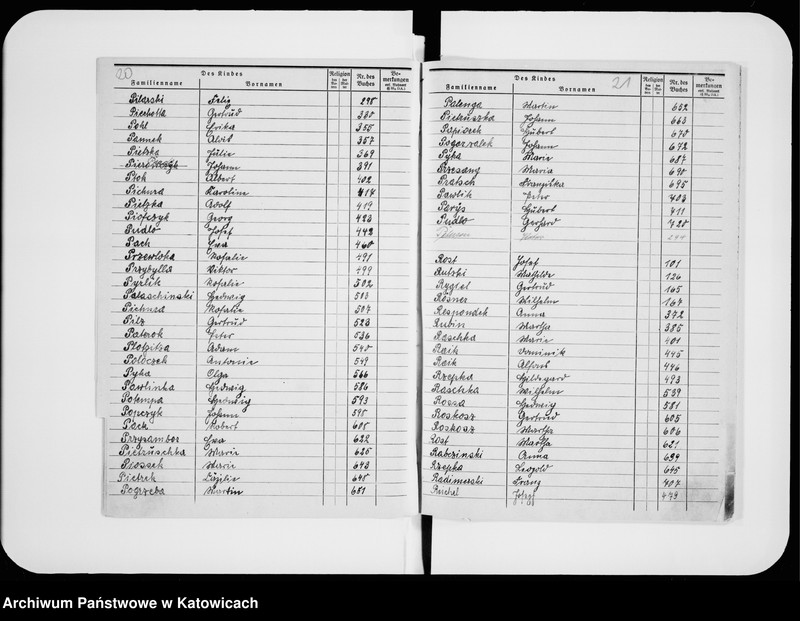 20
Des Kindes
Religion
Nr. des Buches
Be-merkungen
Familienname Vornamen
Pilarski Felix 298
Piechotta Gertrud 330
Pohl Erika 350
Pannek Alois 357
Pietzka Julie 369
Johann 391
Ptok Albert 402
Pichura Karoline 414
Pietzka Adolf 419
Piofczyk Georg 423
Pudlo Josef 442
Pach Eva 460
Przewloka Rosalie 491
Przybylla Viktor 499
Pyrlik Rosalie 502
Pataschinski Hedwig 503
Pichura Rosalie 507
Pilz Gertrud 523
Paterok Peter 536
Plokitza Adam 540
Poloczek Antonie 549
Pyka Olga 566
Pawlinka Hedwig 586
Polempa Hedwig 593
Popczyk Johann 595
Pach Robert 605
Przysambor Eva 622
Pietruschka Marie 625
Piossek Marie 643
Pietrek Cäzilie 645
Pogrzeba Martin 651
Des Kindes 21
Religion
Nr. des Buches
Be-merkungen
Familienname Vornamen
Palenga Martin 652
Pietruszka Johann 663
Papiorek Hubert 670
Pogorzalek Johann 672
Pyka Marie 687
Przesang Maria 690
Pratsch Franziska 695
Pawlik Peter 703
Parys Hubert 711
Pudlo Gerhard 720
Rost Josef 101
Rutzki Mathilde 126
Rygiel Gertrud 165
Rösner Wilhelm 167
Respondek Anna 372
Rubin Martha 385
Raschka Marie 401
Raik Dominik 445
Raik Alfons 446
Rzepka Hildegard 493
Raschka Wilhelm 539
Rossa Hedwig 581
Roskosz Gertrud 605
Roskosz Martha 606
Rost Martha 621
Rabczinski Anna 639
Rzepka Leopold 645
Radimerski Franz 707
Ruchel Josef 479
Archiwum Państwowe w Katowicach